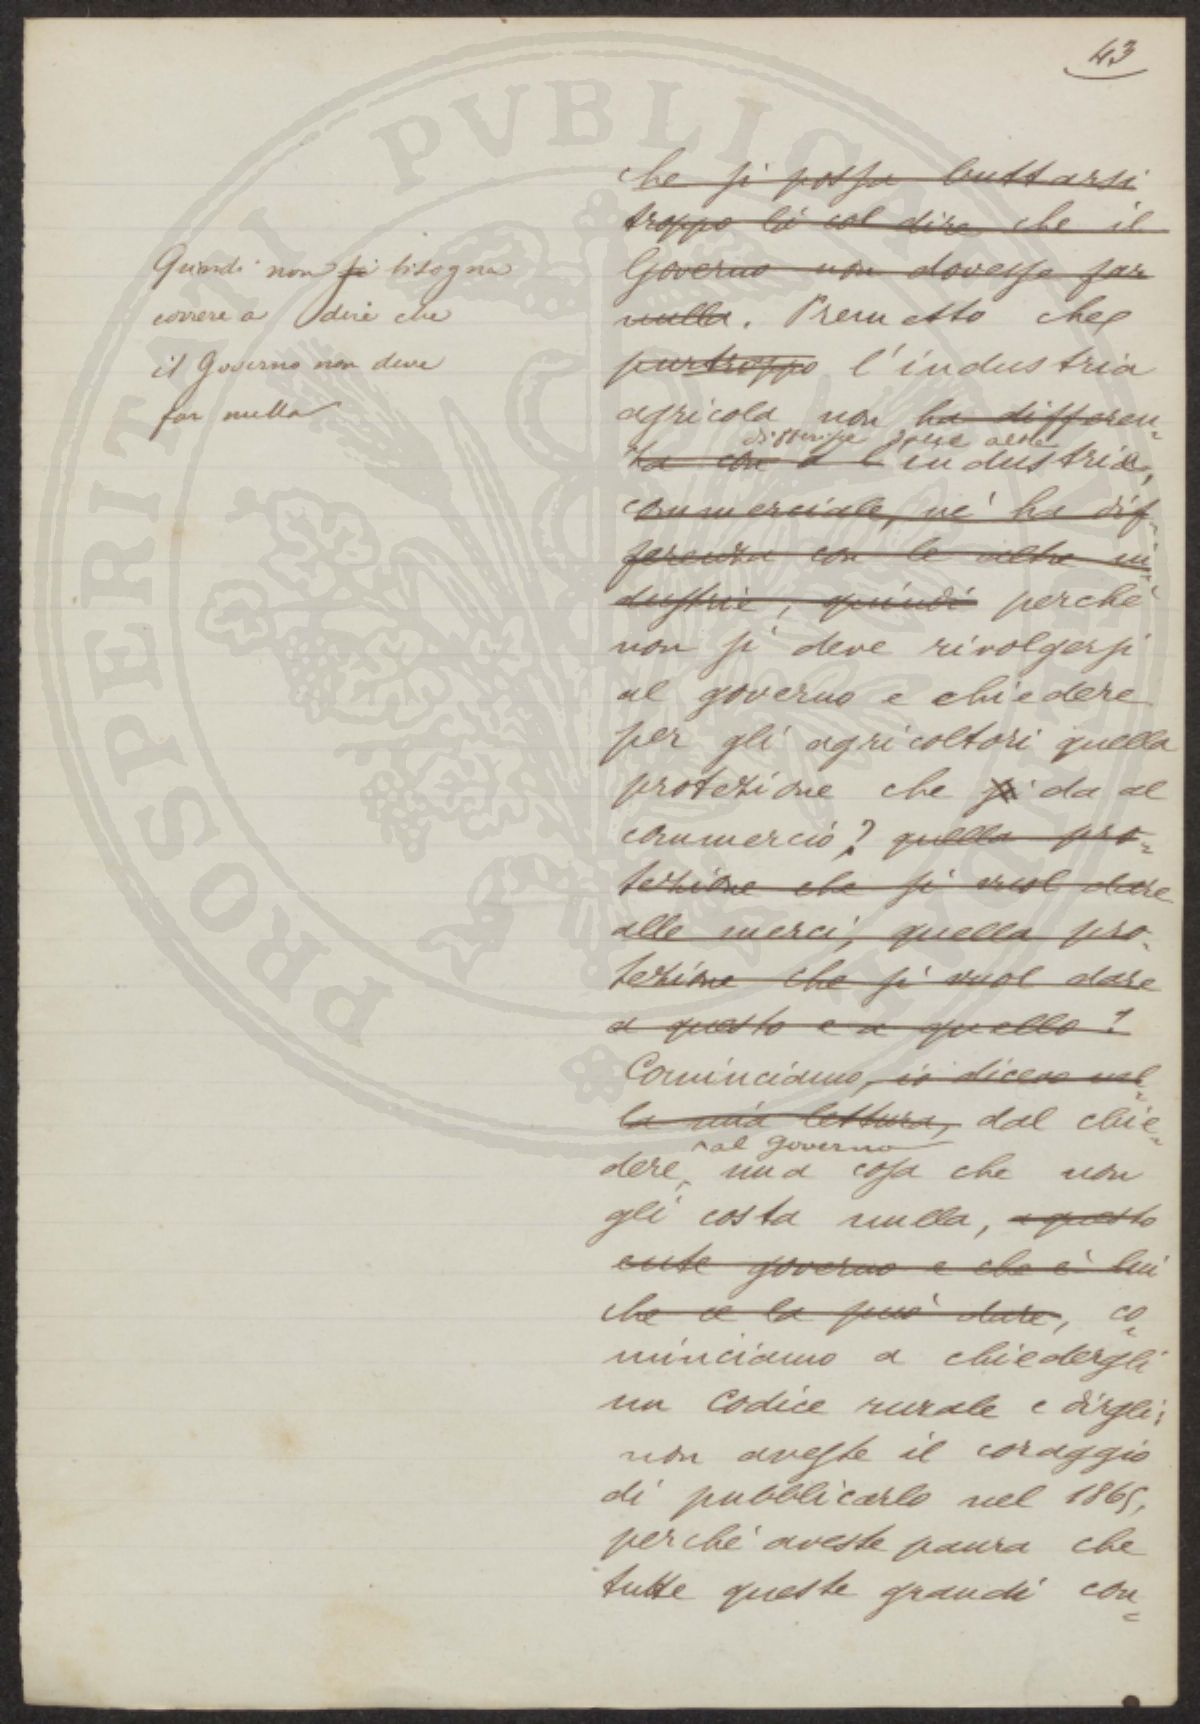 43
che si possa buttarsi
troppo là col dire, che il
Governo non dovesse far
nulla. Premetto che
purtroppo l'industria
agricola non ha differen-
differisce dalle altre
za con l'industria,
commerciale, nè ha dif-
ferenza con le altre in-
dustrie, quindi perchè
non si deve rivolgersi
al governo e chiedere
per gli agricoltori quella
protezione che si da al
commercio? quella pro-
tezione che si vuol dare
alle merci, quella pro-
tezione che si vuol dare
a questo e a quello?
Cominciamo, io dicevo nel-
la mia lettura, dal chie-
al Governo
dere, una cosa che non
gli costa nulla, a questo
ente governo e che è lui
che ce la può dare, co-
minciamo a chiedergli
un Codice rurale e dirgli:
non aveste il coraggio
di pubblicarlo nel 1865,
perchè aveste paura che
tutte queste grandi con-
Quindi non si bisogna
correre a dire che
il Governo non deve
far nulla
PROSPERITATI PVBLICAE